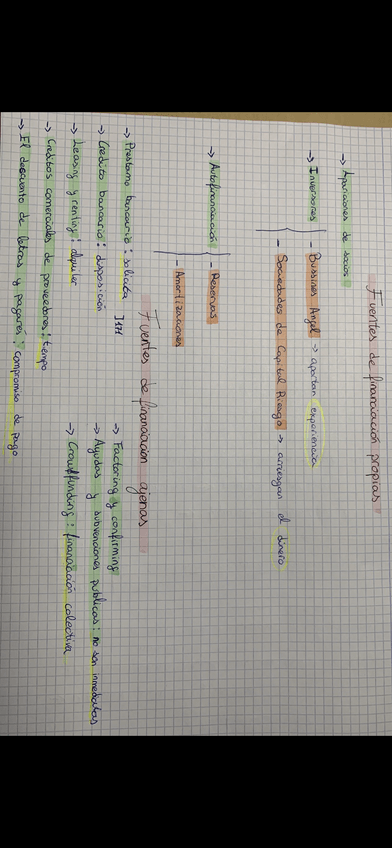 Fuentes de financiación propias
→ Aportaciones de socios
→ Inversores - Bussines Angel → aportan experiencia
- Sociedades de Capital Riesgo → arriesgan el dinero
→ Autofinanciación - Reservas
- Amortizaciones
Fuentes de financiación ajenas
→ Prestamo bancario: solicita
→ Credito bancario: disposición
→ Leasing y renting: alquiler
→ Creditos comerciales de proveedores: tiempo
→ El descuento de letras y pagarés: compromiso de pago
→ Factoring y confirming
→ Ayudas y subvenciones publicas: no son inmediatas
→ Crowdfunding: financiación colectiva